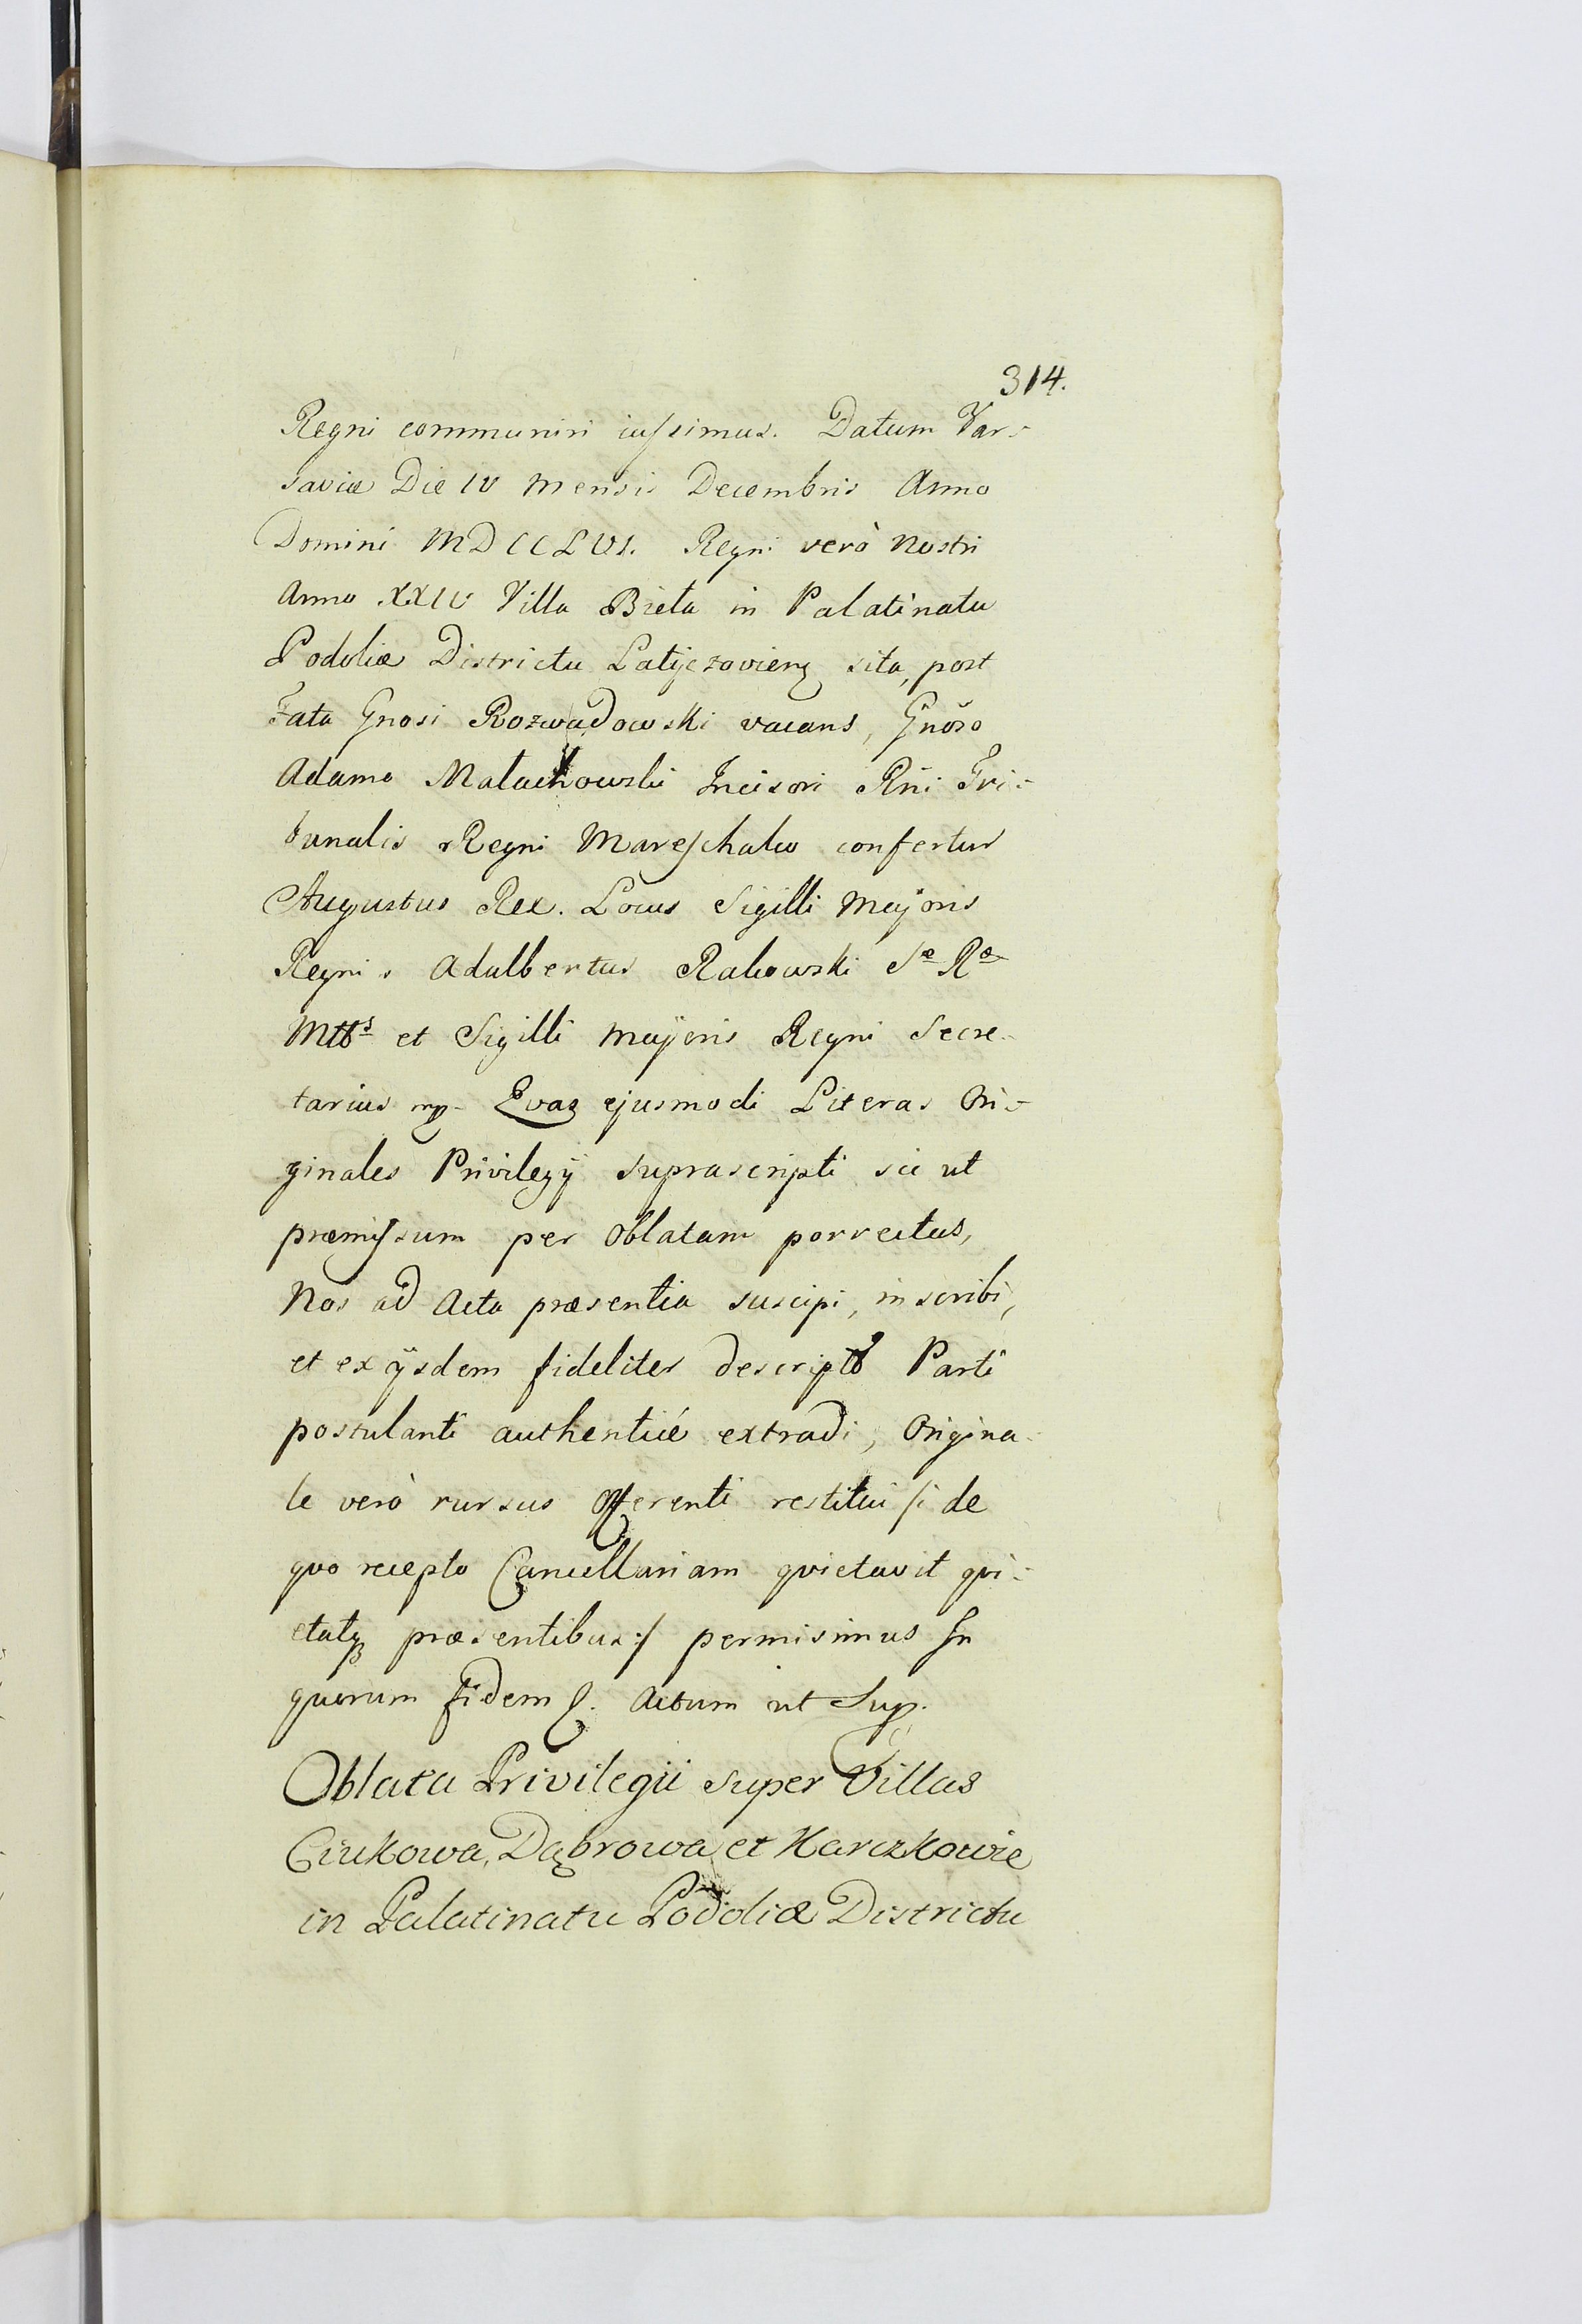 314.
Regni communiri iussimus. Datum Var-
saviæ Die IV Mensis Decembris Anno
Domini MDCCLVI. Regni verò Nostri
Anno XXIV Villa Bieła in Palatinatu
Podoliæ Districtu Latyczovien sita, post
Fata Gnosi Rozwadowski vacans, Gnõso
Adamo Małachowski Incisori Rñi Tri-
bunalis Regni Mareschalco confertur
Augustus Rex. Locus Sigilli Majoris
Regni. Adalbertus Rakowski Sæ Ræ
Mttis et Sigilli Majoris Regni Secre-
tarius mp. Quas ejusmodi Literas Ori-
ginales Privilegÿ suprascripti sic ut
præmissum per Oblatam porrectas,
Nos ad Acta præsentia suscipi, inscribi,
et ex ÿsdem fideliter descripto Parti
postulanti authenticé extradi, Origina-
le verò rursus Offerenti restitui /: de
quo recepto Cancellariam quietavit qui-
etatque præsentibus :/ permisimus In
quorum fidem &. Actum ut Sup.
Oblata Privilegii super Villas
Ciukowa, Dąbrowa et Karczkowie
in Palatinatu Podoliæ Districtu